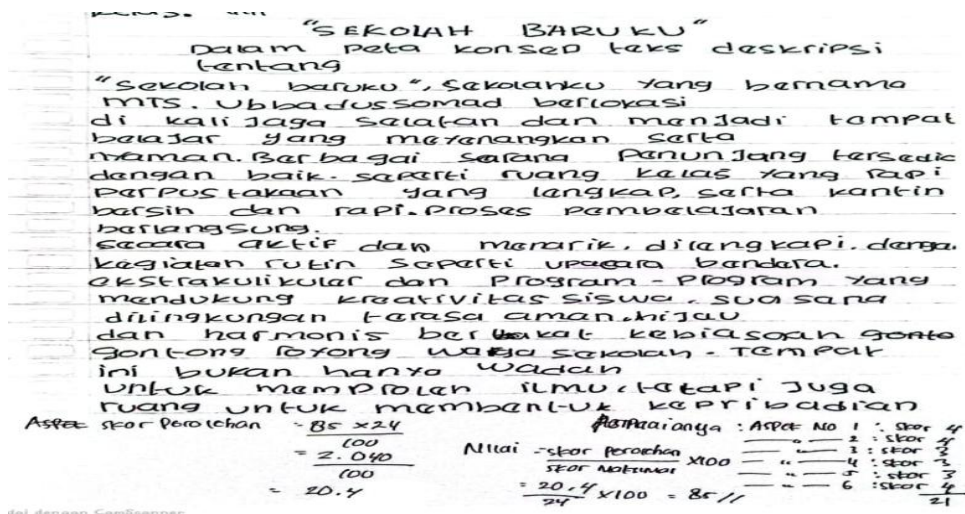 "SEKOLAH BARUKU"
Dalam peta konsep teks deskripsi
tentang
"Sekolah baruku", Sekolahku yang bernama
MTS. Ubbadussomad berlokasi
di kali Jaga Selatan dan menjadi tempat
belajar yang menyenangkan serta
nyaman. Berbagai sarana penunjang tersedia
dengan baik. seperti ruang kelas yang rapi
perpustakaan yang lengkap, serta kantin
bersih dan rapi. proses pembelajaran
berlangsung.
secara aktif dan menarik. dilengkapi. denga.
kegiatan rutin seperti upacara bendera.
ekstrakulikuler dan program-program yang
mendukung kreativitas siswa. suasana
dilingkungan terasa aman. hijau
dan harmonis berkat kebiasaan
gontong royong warga sekolah. Tempat
ini bukan hanya wadah
untuk memproleh ilmu, tetapi juga
ruang untuk membentuk kepribadian
Aspek skor Perolehan = 85 x 24
100
= 2.040
100
= 20.4
Nilai = skor perolehan x100
skor Maksimal
= 20.4 x 100 = 85 //
24
: Aspek No 1 : skor 4
— " — 2 : skor 4
— " — 3 : skor 3
— " — 4 : skor 3
— " — 5 : skor 3
— " — 6 : skor 4
21